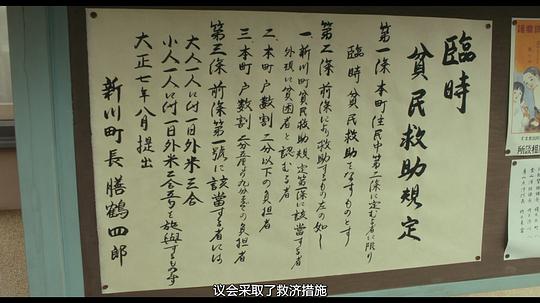 臨時
貧民救助規定
第一條本町住民中第二條に定むる者に限り
臨時貧民救助をなすものとす
第二條前條により救助するもの左の如し
一、新川町貧民救助規定第條に該當する者
外現に貧困者と認むる者
二、本町戸數割二分以下の負担者
三本町戸數割二分五厘乃九分迄の負担者
第三條前條第一號に該當する者には
大人一人に付一日外米三合
小人一人に付一日外米二合五勺を施與するものとす
大正七年八月提出
新川町長膳鶴四郎
議
所談相
议会采取了救济措施